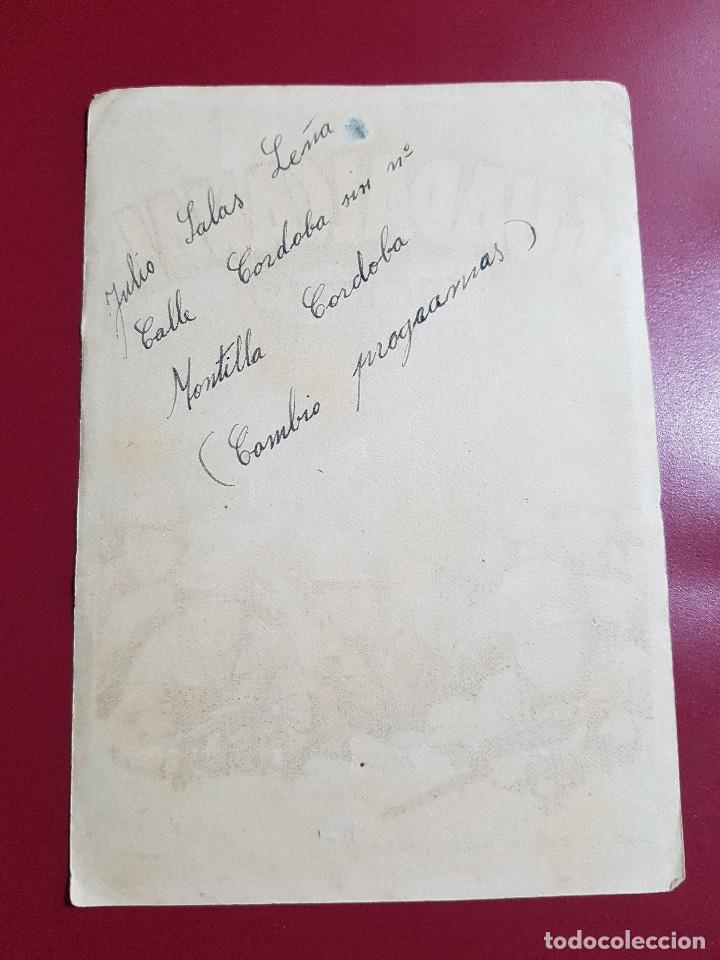 Julio Salas Leña
Calle Cordoba sin nº
Montilla Cordoba
(Cambio programas)
todocoleccion